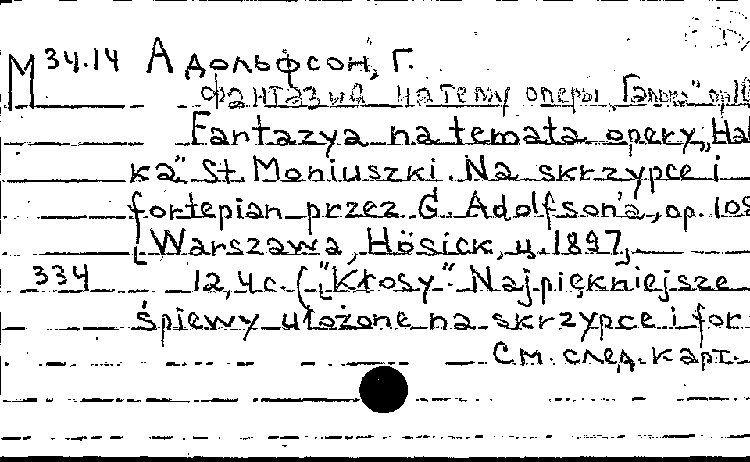 М 34.14 Адольфсон, Г.
Фантазия на темы оперы „Галька"
Fantazya na temata opery „Hal
ka" St. Moniuszki. Na skrzypce i
fortepian przez G. Adolfson'a, op. 108
[Warszawa, Hösick, ц. 1897].
334 12, 4 с. („Kłosy". Najpiękniejsze
śpiewy ułożone na skrzypce i for
См. след. карт.